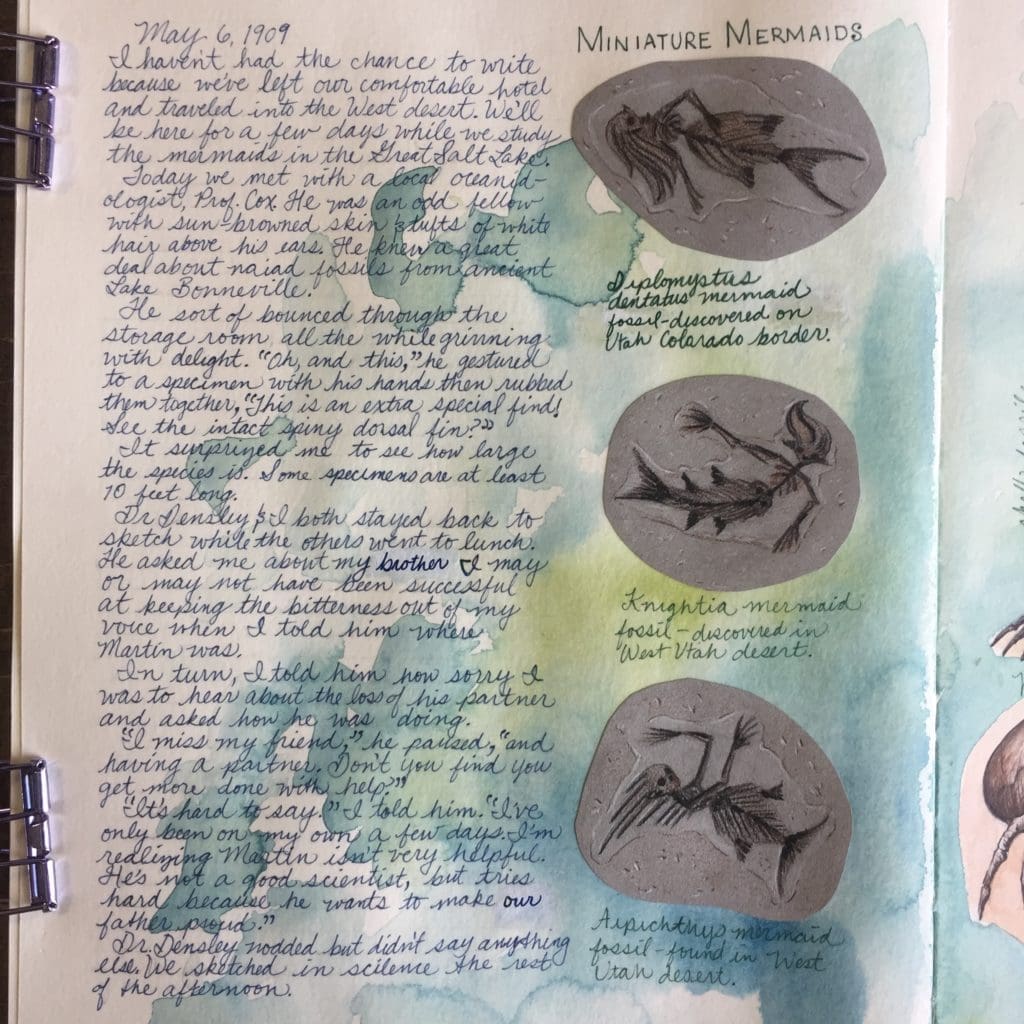 May 6, 1909
I haven't had the chance to write
because we've left our comfortable hotel
and traveled into the West desert. We'll
be here for a few days while we study
the mermaids in the Great Salt Lake.
Today we met with a local oceanid-
ologist, Prof. Cox. He was an odd fellow
with sun-browned skin & tufts of white
hair above his ears. He knew a great
deal about naiad fossils from ancient
Lake Bonneville.
He sort of bounced through the
storage room, all the while grinning
with delight. "Oh, and this," he gestured
to a specimen with his hands then rubbed
them together, "This is an extra special find!
See the intact spiny dorsal fin?"
It surprized me to see how large
the species is. Some specimens are at least
10 feet long.
Dr. Densley & I both stayed back to
sketch while the others went to lunch.
He asked me about my brother & I may
or may not have been successful
at keeping the bitterness out of my
voice when I told him where
Martin was.
In turn, I told him how sorry I
was to hear about the loss of his partner
and asked how he was doing.
"I miss my friend," he paused, "and
having a partner. Don't you find you
get more done with help?"
"It's hard to say." I told him. "I've
only been on my own a few days. I'm
realizing Martin isn't very helpful.
He's not a good scientist, but tries
hard because he wants to make our
father proud."
Dr. Densley nodded but didn't say anything
else. We sketched in scilence the rest
of the afternoon.
MINIATURE MERMAIDS
Diplomystus
dentatus mermaid
fossil-discovered on
Utah Colorado border.
Knightia mermaid
fossil - discovered in
West Utah desert.
Aipichthys mermaid
fossil - found in West
Utah desert.